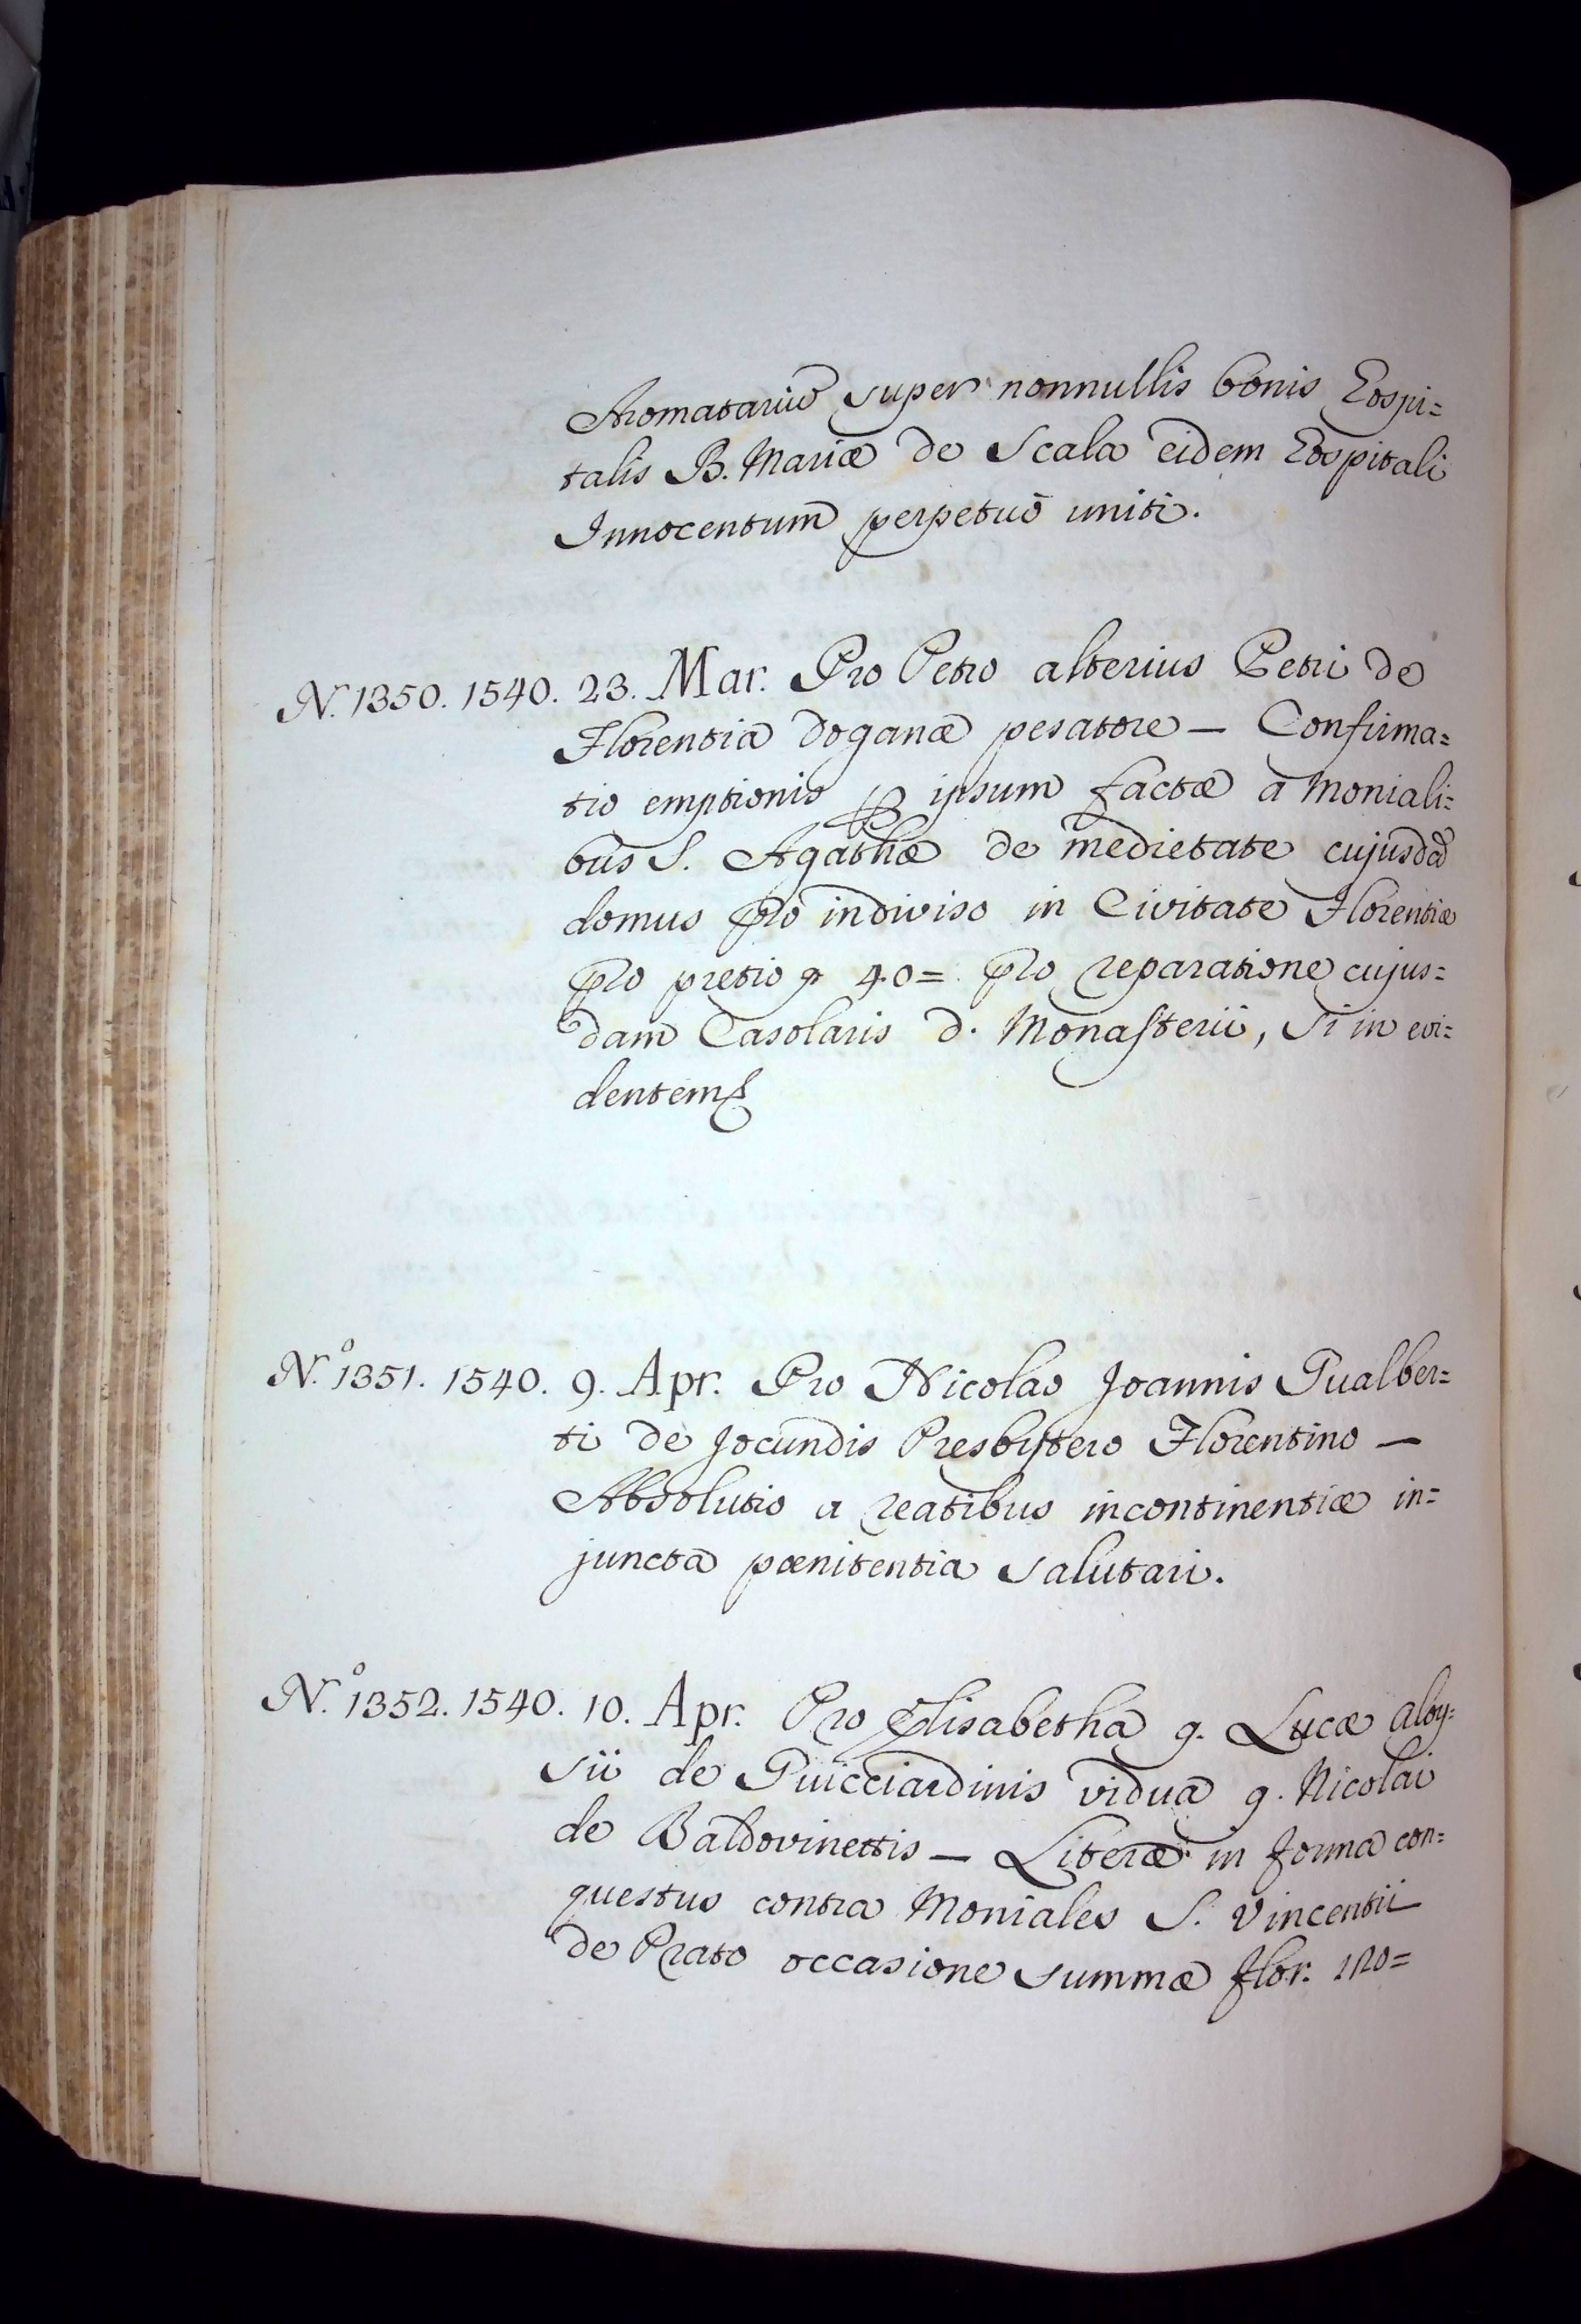 Aromatariũ super nonnullis bonis Hospi=
talis B. Mariæ de Scala eidem Hospitali
Innocentum perpetuò uniti.
N. 1350. 1540. 23. Mar. Pro Petro alterius Petri de
Florentia doganæ pesatore — Confirma=
tio emptionis ꝑ ipsum factæ a Moniali=
bus S. Agathæ de medietate cujusdã
domus pro indiviso in Civitate Florentiæ
pro pretio 40= pro reparatione cujus=
dam Casolaris d. Monasterii, Si in evi=
dentem
N.º 1351. 1540. 9. Apr. Pro Nicolao Joannis Gualber=
ti de Jocundis Presbytero Florentino —
Absolutio a reatibus incontinentiæ in=
juncta pœnitentia salutari.
N.º 1352. 1540. 10. Apr. Pro Elisabetha q. Lucæ Aloy=
sii de Guicciardinis vidua q. Nicolai
de Baldovinettis — Literæ in forma con=
questus contra Moniales S. Vincentii
de Prato occasione summæ flor.